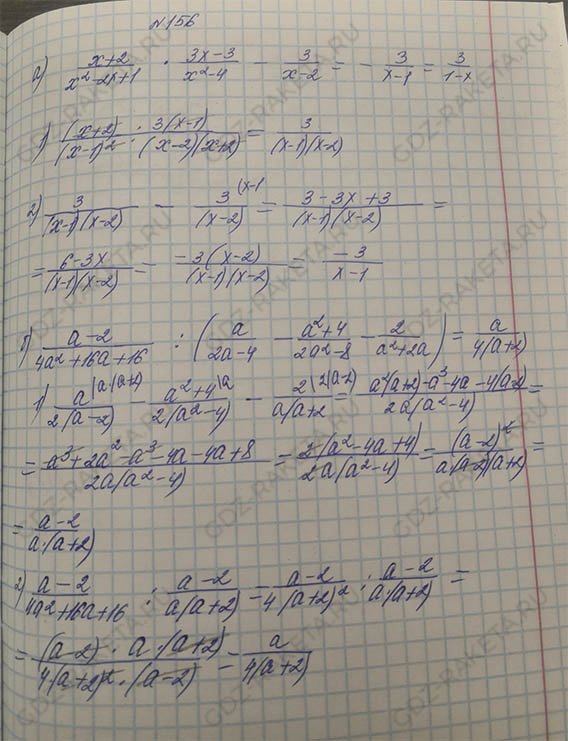 №156
а) (x+2)/(x²-2x+1) · (3x-3)/(x²-4) - 3/(x-2) = - 3/(x-1) = 3/(1-x)
1) (x+2)/(x-1)² · 3(x-1)/((x-2)(x+2)) = 3/((x-1)(x-2))
2) 3/((x-1)(x-2)) - 3/(x-2) |(x-1 = (3-3x+3)/((x-1)(x-2)) =
= (6-3x)/((x-1)(x-2)) = -3(x-2)/((x-1)(x-2)) = -3/(x-1)
б) (a-2)/(4a²+16a+16) : (a/(2a-4) - (a²+4)/(2a²-8) - 2/(a²+2a)) = a/(4(a+2))
1) a |a·(a+2)/(2(a-2)) - (a²+4) |a/(2(a²-4)) - 2 |2(a-2)/(a(a+2) = (a²(a+2)-a³-4a-4(a-2))/(2a(a²-4)) =
= (a³+2a²-a³-4a-4a+8)/(2a(a²-4)) = 2(a²-4a+4)/(2a(a²-4)) = (a-2)²/(a(a-2)(a+2)) =
= (a-2)/(a·(a+2))
2) (a-2)/(4a²+16a+16) : (a-2)/(a(a+2)) = (a-2)/(4(a+2)²) : (a-2)/(a·(a+2)) =
= ((a-2)·a·(a+2))/(4(a+2)²·(a-2)) = a/(4(a+2))
GDZ-RAKETA.RU